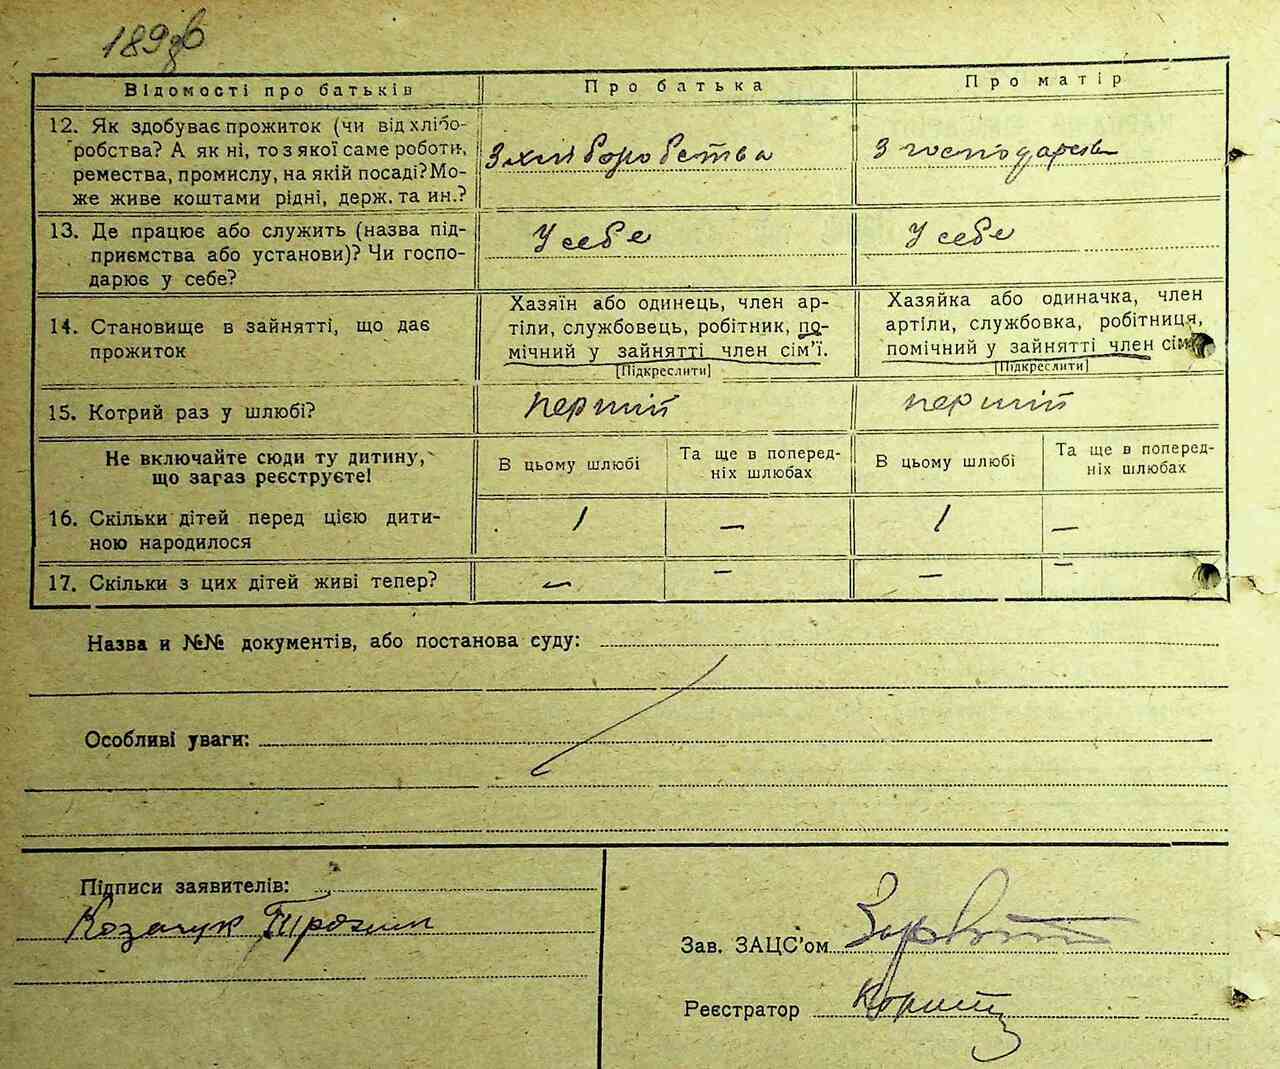 189зв
Відомості про батьків
Про батька
Про матір
12. Як здобуває прожиток (чи від хлібо-
робства? А як ні, то з якої саме роботи,
ремества, промислу, на якій посаді? Мо-
же живе коштами рідні, держ. та ин.?
З хліборобства
З господарства
13. Де працює або служить (назва під-
приємства або установи)? Чи госпо-
дарює у себе?
У себе
У себе
14. Становище в зайнятті, що дає
прожиток
Хазяїн або одинець, член ар-
тіли, службовець, робітник, по-
мічний у зайнятті член сім'ї.
[Підкреслити]
Хазяйка або одиначка, член
артіли, службовка, робітниця,
помічний у зайнятті член сім
[Підкреслити]
15. Котрий раз у шлюбі?
перший
перший
Не включайте сюди ту дитину,
що загаз реєструєте!
В цьому шлюбі
Та ще в поперед-
ніх шлюбах
В цьому шлюбі
Та ще в поперед-
ніх шлюбах
16. Скільки дітей перед цією дити-
ною народилося
1
—
1
—
17. Скільки з цих дітей живі тепер?
—
—
—
—
Назва и №№ документів, або постанова суду:
Особливі уваги:
Підписи заявителів:
Козачук Трохим
Зав. ЗАЦС'ом
Реєстратор